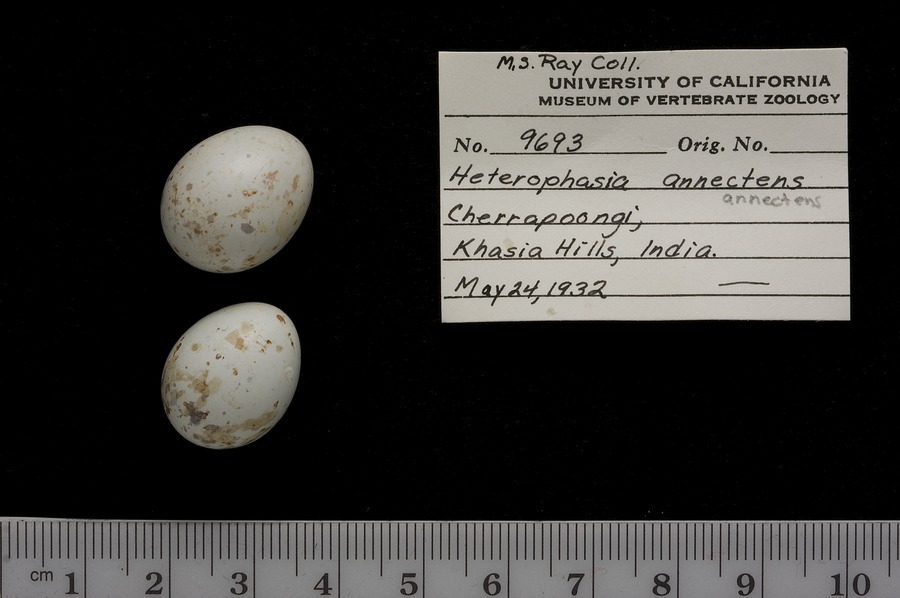 M.S. Ray Coll.
UNIVERSITY OF CALIFORNIA
MUSEUM OF VERTEBRATE ZOOLOGY
No. 9693 Orig. No.
Heterophasia annectens
annectens
Cherrapoongi,
Khasia Hills, India.
May 24, 1932 —
cm 1 2 3 4 5 6 7 8 9 10